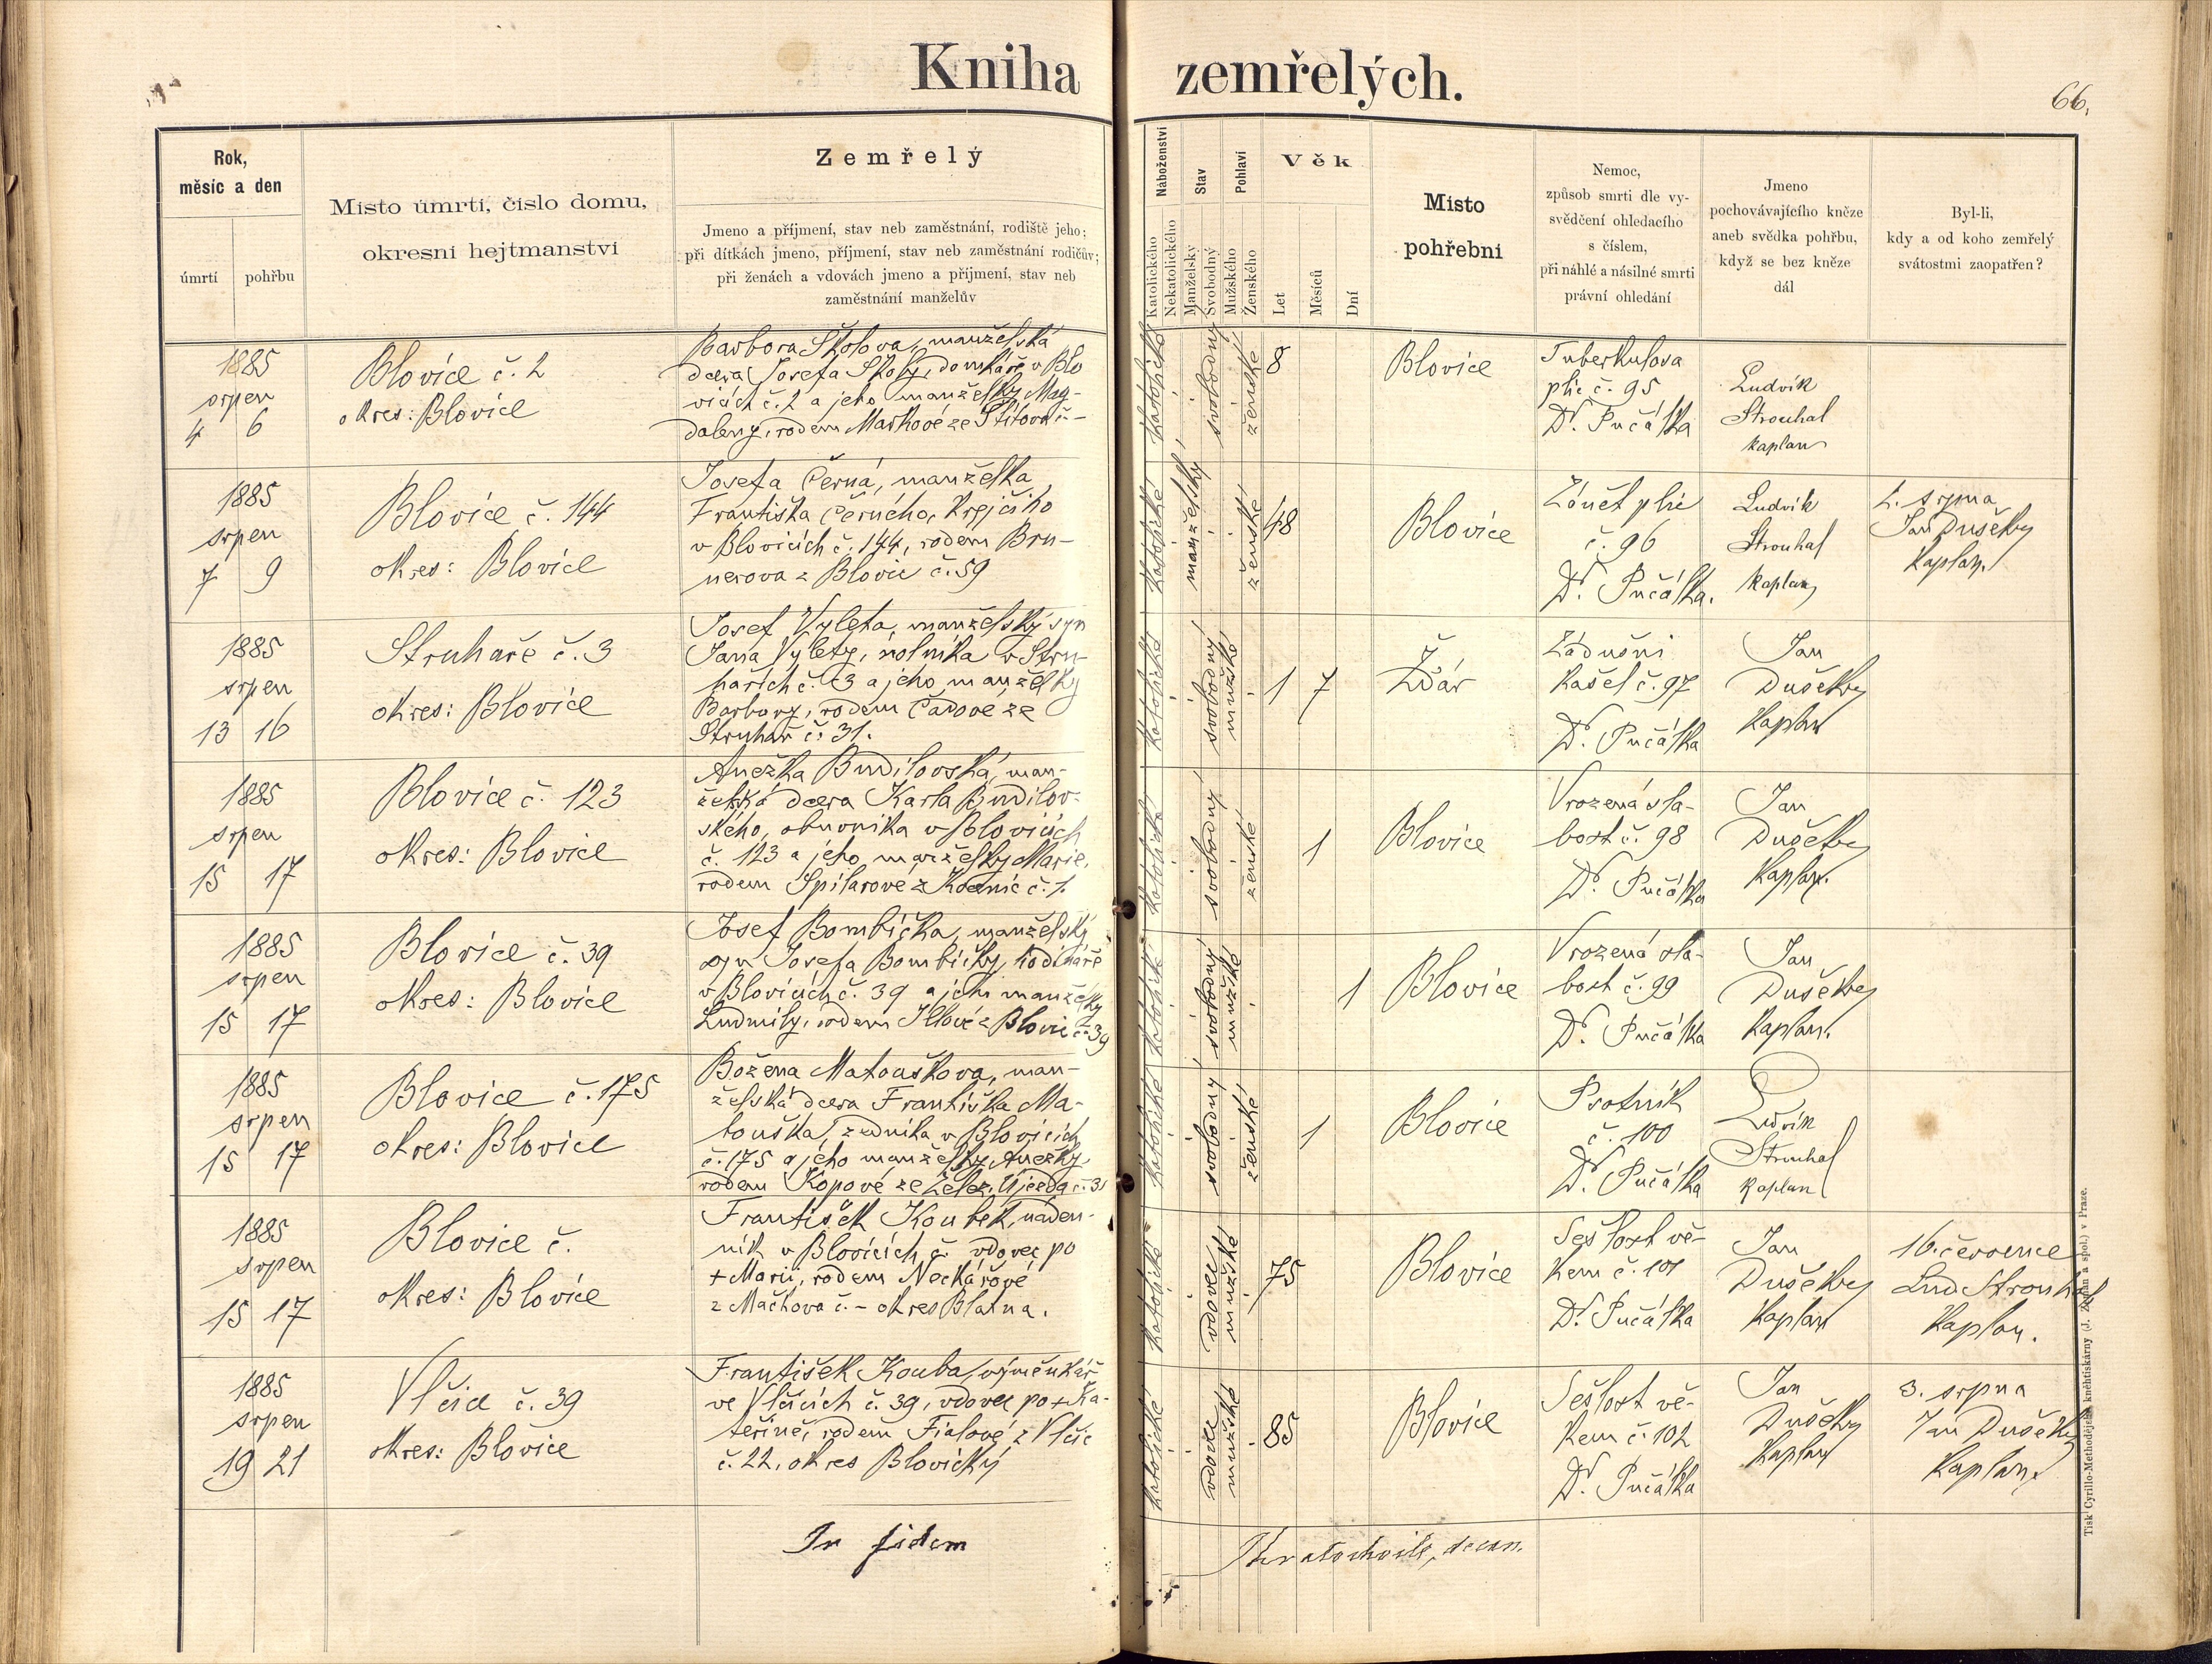 Kniha zemřelých.
66.
Rok,
měsíc a den
úmrtí pohřbu
Místo úmrtí, číslo domu,
okresní hejtmanství
Zemřelý
Jmeno a příjmení, stav neb zaměstnání, rodiště jeho;
při dítkách jmeno, příjmení, stav neb zaměstnání rodičův;
při ženách a vdovách jmeno a příjmení, stav neb
zaměstnání manželův
Náboženství
Katolického
Nekatolického
Stav
Manželský
Svobodný
Pohlaví
Mužského
Ženského
Věk
Let
Měsíců
Dní
Místo
pohřební
Nemoc,
způsob smrti dle vy-
svědčení ohledacího
s číslem,
při náhlé a násilné smrti
právní ohledání
Jmeno
pochovávajícího kněze
aneb svědka pohřbu,
když se bez kněze
dál
Byl-li,
kdy a od koho zemřelý
svátostmi zaopatřen?
1885
srpen
4 6
Blovice č. 2
okres: Blovice
Barbora Školova, manželská
dcera Josefa Školy, domkáře v Blo
vicích č. 2 a jeho manželky Mag-
daleny, rodem Markové ze Štítova č. -
katolické
svobodný
ženské
8
Blovice
Tuberkulosa
plic č. 95
Dr. Pučálka
Ludvík
Strouhal
kaplan
1885
srpen
7 9
Blovice č. 144
okres: Blovice
Josefa Černá, manželka
Františka Černého, krejčího
v Blovicích č. 144, rodem Bru-
nerova z Blovic č. 59
katolické
manželský
ženské
48
Blovice
Zánět plic
č. 96
Dr. Pučálka.
Ludvík
Strouhal
kaplan
srpna
Jan Dušekby
Kaplan.
1885
srpen
13 16
Struhaře č. 3
okres: Blovice
Josef Vyleta, manželský syn
Jana Vylety, rolníka v Stru-
hařích č. 3 a jeho manželky
Barbory, rodem Čadové ze
Struhař č. 31.
katolické
svobodný
mužské
1 7
Ždár
Zádušní
kašel č. 97
Dr. Pučálka
Jan
Dušekby
Kaplan
1885
srpen
15 17
Blovice č. 123
okres: Blovice
Anežka Budilovská, man-
želská dcera Karla Budilov-
ského, obuvníka v Blovicích
č. 123 a jeho manželky Marie,
rodem Špilarové z č. 1.
katolické
svobodný
ženské
1
Blovice
Vrozená sla-
bost č. 98
Dr. Pučálka
Jan
Dušekby
Kaplan.
1885
srpen
15 17
Blovice č. 39
okres: Blovice
Josef Bombička, manželský
syn Josefa Bombičky, hodináře
v Blovicích č. 39 a jeho manželky
Ludmily, rodem z Blovic č. 39
katolické
svobodný
mužské
1
Blovice
Vrozená sla-
bost č. 99
Dr. Pučálka
Jan
Dušekby
Kaplan.
1885
srpen
15 17
Blovice č. 175
okres: Blovice
Božena Matouškova, man-
želská dcera Františka Ma-
touška, zedníka v Blovicích
č. 175 a jeho manželky Anežky
rodem Kopové ze Želez. Újezda č. 31
katolické
svobodný
ženské
1
Blovice
Psotník
č. 100
Dr. Pučálka
Ludvík
Strouhal
kaplan
1885
srpen
15 17
Blovice č.
okres: Blovice
František Koubek, náden-
ník v Blovicích č. vdovec po
+ Marii, rodem Neckářové
z Mačkova č. - okres Blatna.
katolické
vdovec
mužské
75
Blovice
Sešlost vě-
kem č. 101
Dr. Pučálka
Jan
Dušekby
Kaplan
16. července
Lud Strouhal
Kaplan.
1885
srpen
19 21
Vlčice č. 39
okres: Blovice
František Kouba, výměnkář
ve Vlčicích č. 39, vdovec po + Ka-
teřině, rodem Fialové z Vlčic
č. 22, okres Blovický
katolické
vdovec
mužské
85
Blovice
Sešlost vě-
kem č. 102
Dr. Pučálka
Jan
Dušekby
Kaplan
3. srpna
Jan Dušekby
Kaplan.
In fidem
decan.
Tisk Cyrillo-Methodějské knihtiskárny (J. Zeman a spol.) v Praze.